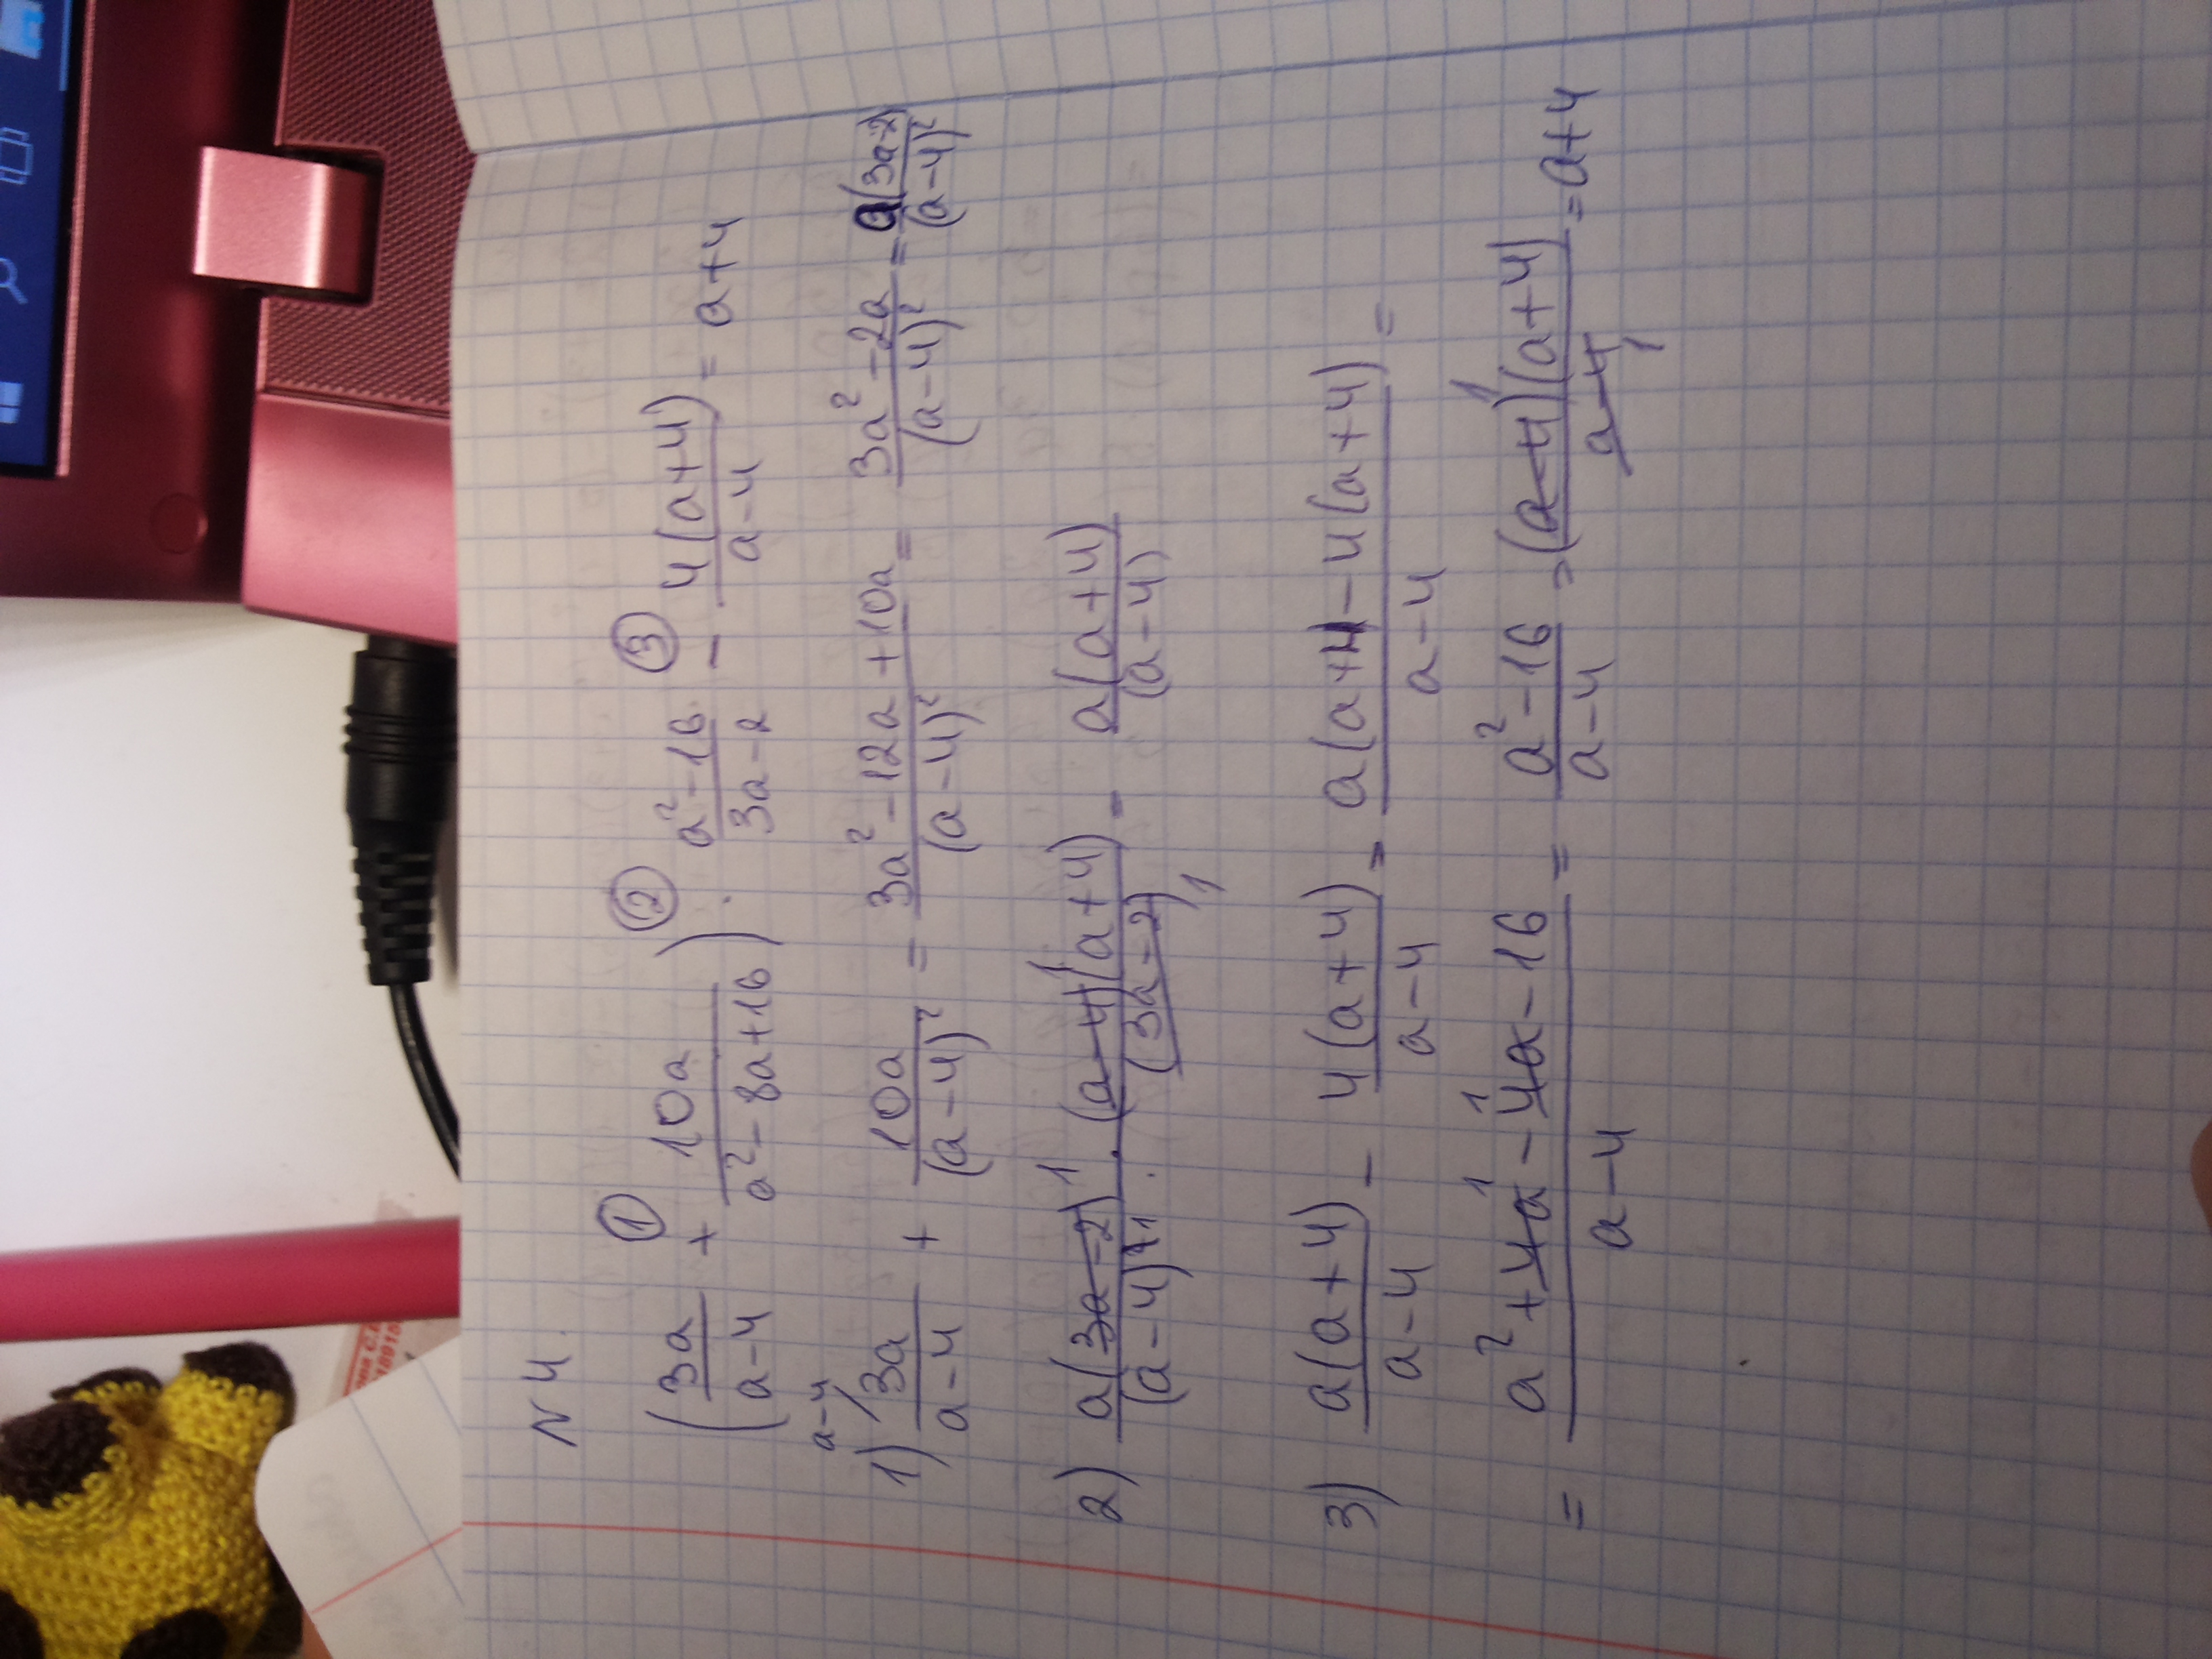 N 4.
① ② ③
(3a/(a-4) + 10a/(a²-8a+16)) · (a²-16)/(3a-2) - 4(a+4)/(a-4) = a+4
1) a-4/ 3a/(a-4) + 10a/(a-4)² = (3a²-12a+10a)/(a-4)² = (3a²-2a)/(a-4)² = a(3a-2)/(a-4)²
2) a(3a-2)¹/(a-4)²¹ · (a-4)¹(a+4)/(3a-2)₁ = a(a+4)/(a-4)
3) a(a+4)/(a-4) - 4(a+4)/(a-4) = (a(a+4)-4(a+4))/(a-4) =
= (a²+4a¹-4a¹-16)/(a-4) = (a²-16)/(a-4) = (a-4)¹(a+4)/(a-4)₁ = a+4